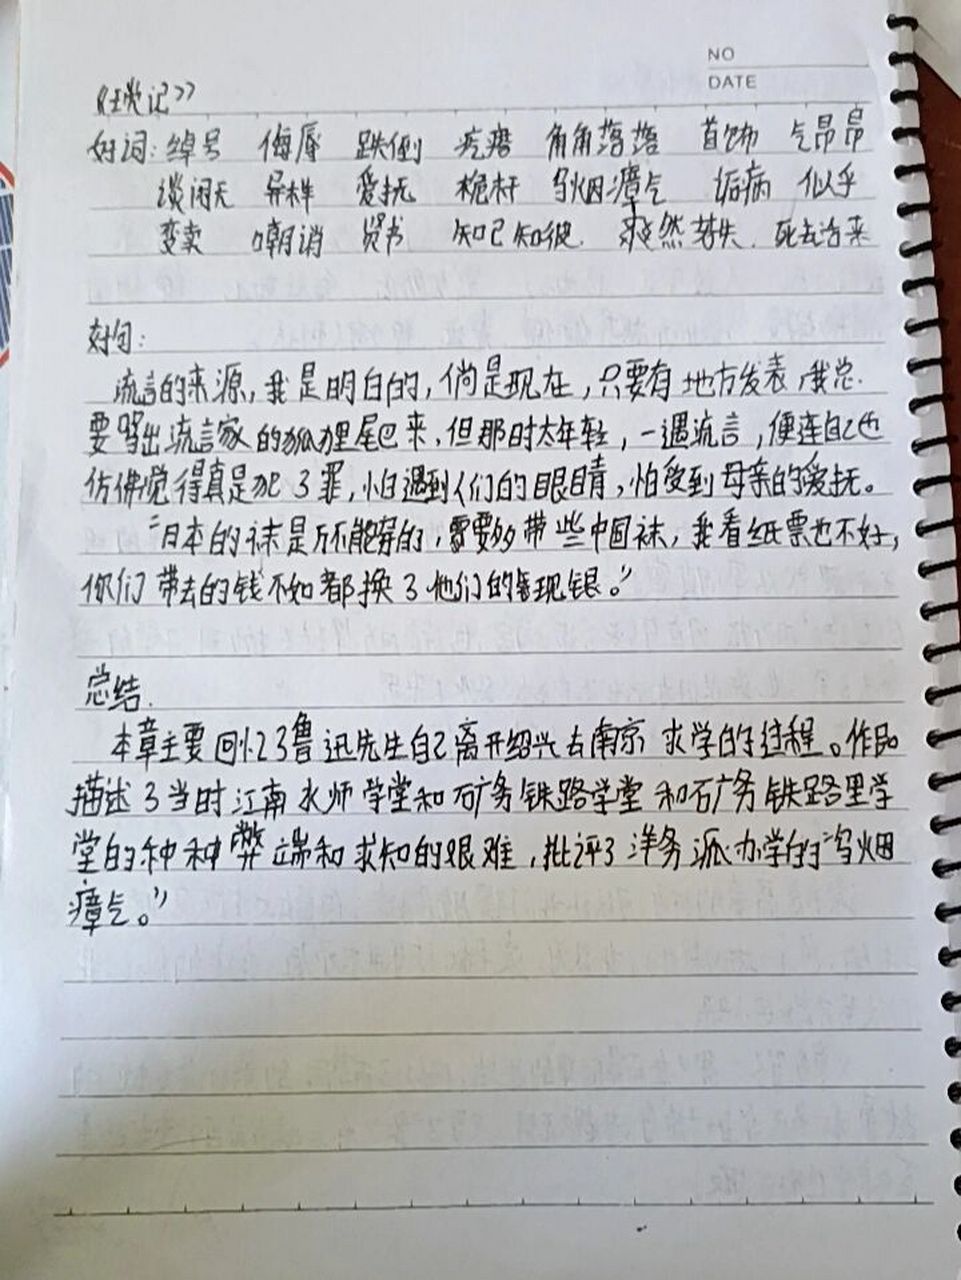 NO
DATE
《琐记》
好词：绰号 侮辱 跌倒 疙瘩 角角落落 首饰 气昂昂
谈闲天 异样 爱抚 桅杆 乌烟瘴气 诟病 似乎
变卖 嘲诮 赁书 知己知彼. 爽然若失. 死去活来
好句：
流言的来源，我是明白的，倘是现在，只要有地方发表，我总.
要骂出流言家的狐狸尾巴来，但那时太年轻，一遇流言，便连自己也
仿佛觉得真是犯了罪，怕遇到人们的眼睛，怕受到母亲的爱抚。
“日本的袜是万不能穿的，需要多带些中国袜，我看纸票也不好，
你们带去的钱不如都换了他们的现银。”
总结.
本章主要回忆了鲁迅先生自己离开绍兴去南京求学的过程。作品
描述了当时江南水师学堂和矿务铁路学堂和矿务铁路里学
堂的种种弊端和求知的艰难，批评了洋务派办学的“乌烟
瘴气。”